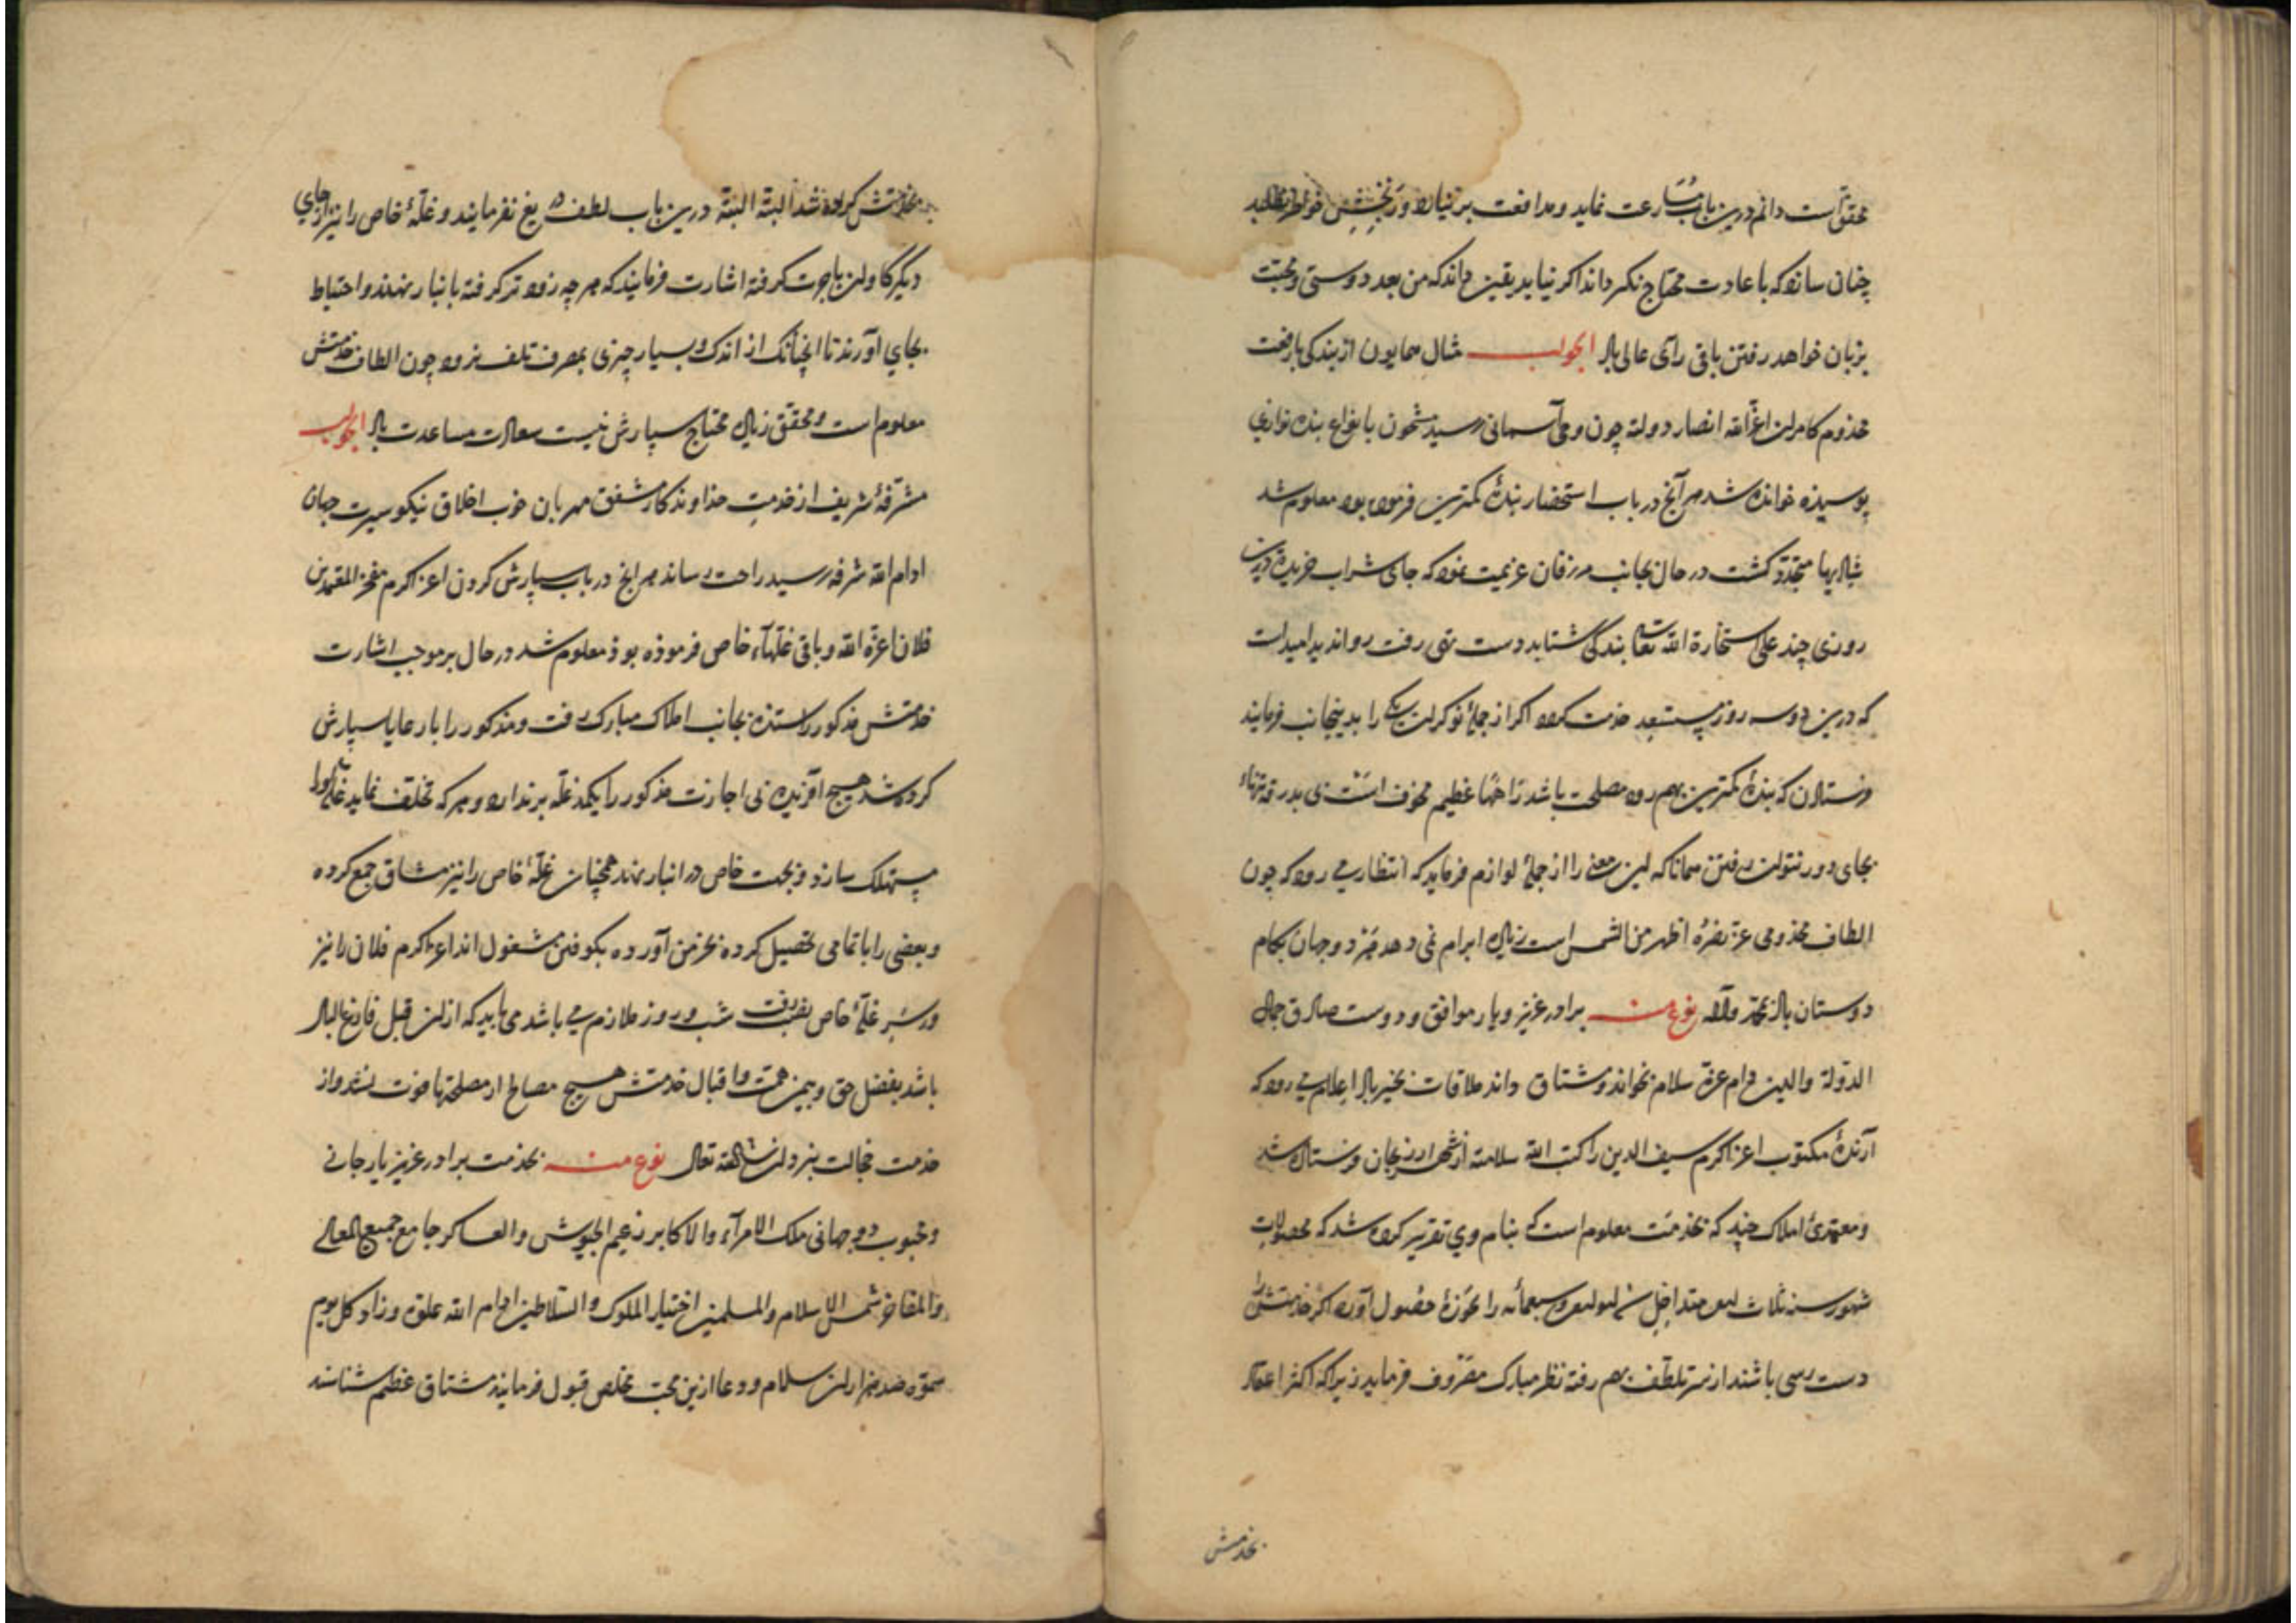 محقق است دانم درین باب مسارعت نماید و مدافعت بر نیارد و رنجش خواطر نطلبد
چنان سازد که باعادت محتاج نکرداند اکر نیاید یقین داند که من بعد دوستی و محبت
بزبان خواهد رفتن باقی رآی عالی باد الجواب مثال همایون از بندکی بارفعت
مخذوم کامران اعز الله انصار دولته چون وحی آسمانی رسید مشحون بانواع بنده نوازی
بوسیذه خوانده شد هر آنج در باب استحضار بندهٔ کمترین فرموده بود معلوم شد
شادیها متجدد کشت در حال بجانب مرزفان عزیمت نموده که جای شراب خریده
روزی چند علی استخارة الله تعا بندکی شتابد دست تهی رفت روا ندید امیدست
که درین دوسه روز بستعد خذمت کرده اکر از جملهٔ نوکران یکی را بدینجانب فرمایند
فرستادن که بندهٔ کمترین بهم رود مصلحت باشد راهها عظیم مخوف است بی بدرقه تنهاء
بجای دور نتوان رفتن همانا که این معنی را از جملهٔ لوازم فرماید که انتظار می رود که چون
الطاف مخذومی عز نصره اظهر من الشمس است زیاده ابرام نمی دهد مزد و جهان بکام
دوستان باد بمحمد وآله نوع منه برادر عزیز و یار موافق و دوست صادق جمال
الدولة والدین دام عزه سلام بخواند و مشتاق داند ملاقات بخیر باد اعلام می رود که
آرندهٔ مکتوب اعز اکرم سیف الدین راکتب الله سلامته از شهر ارزنجان فرستاده شد
ومعهدئ املاک چند که بخذمت معلوم است که بنام وی تقریر کرده شد که محصولات
شهور سنه ثلاث متداخل وسبعمائه را بحوزهٔ حصول آورد اکر خذمتش را
دست رسی باشند از سر تلطف بهم رفته نظر مبارک مصروف فرماید زیرا که اکثر اعتماد
بخذمتش
بخذمتش کرده شد البته البته درین باب لطف دریغ نفرمایند و غلهٔ خاص را نیز از جای
دیکر کاوان باجرت کرفته اشارت فرمایند که هر چه زودتر کرفته بانبار نهند و احتیاط
بجای آورند تا انچنانک از اندک و بسیار چیزی بمصرف تلف نرود چون الطاف خذمتش
معلوم است و محقق زیاده محتاج سپارش نیست سعادت مساعدت باد الجواب
مشرفهٔ شریف از خذمت خذاوندکار مشفق مهربان خوب اخلاق نیکو سیرت جهان
ادام الله شرفه رسید راحت رساند هر انج در باب سپارش کردن اعز اکرم مفخر المعتمدین
فلان اعزه الله و باقی غلهآء خاص فرموذه بوذ معلوم شد در حال بر موجب اشارت
خذمتش مذکور را ستذه بجانب املاک مبارک رفت و مذکور را با رعایا سپارش
کرده شد هیچ آفریده بی اجازت مذکور را یکمد غله بر ندارد و هر که تخلف نماید غلهٔ او را
مستهلک سازد و بجهت خاص در انبار نهد همچنان غلهٔ خاص را نیز مشاق جمع کرده
وبعضی را با تمامی تحصیل کرده بخرمن آورده بکوفتن مشغول اند اعز اکرم فلان را نیز
در سر غلهٔ خاص نصب رفت شب و روز ملازم می باشد می باید که ازین قبل فارغ البال
باشد بفضل حق و بیمن همت و اقبال خذمتش هیچ مصالح از مصلحتها فوت نشد و از
خذمت خجالت نبرد ان شاالله تعالی نوع منه بخذمت برادر عزیز یار جانی
ومحبوب دوجهانی ملک الامرآء والاکابر زعیم الجیوش والعساکر جامع جمیع المعالی
والمفاخر شمس الاسلام والمسلمین اختیار الملوک والسلاطین ادام الله علوه وزاد کل یوم
سموه صد هزاران سلام و دعا ازین محب مخلص قبول فرمایند مشتاق عظیم شناسند